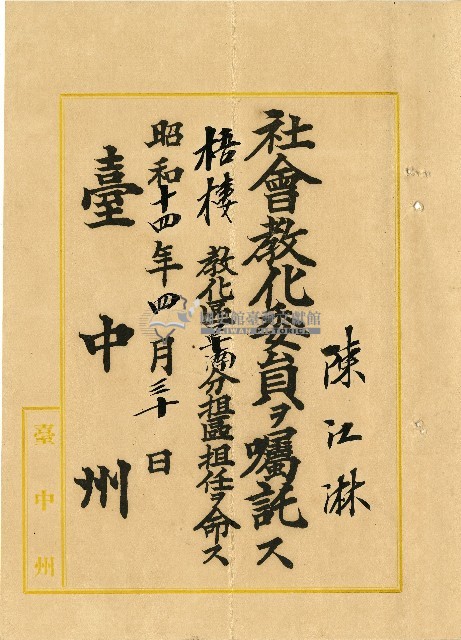 陳江淋
社會教化委員ヲ囑託ス
梧棲教化區草湳分担區担任ヲ命ス
昭和十四年四月三十日
臺中州
臺中州
國史館臺灣文獻館